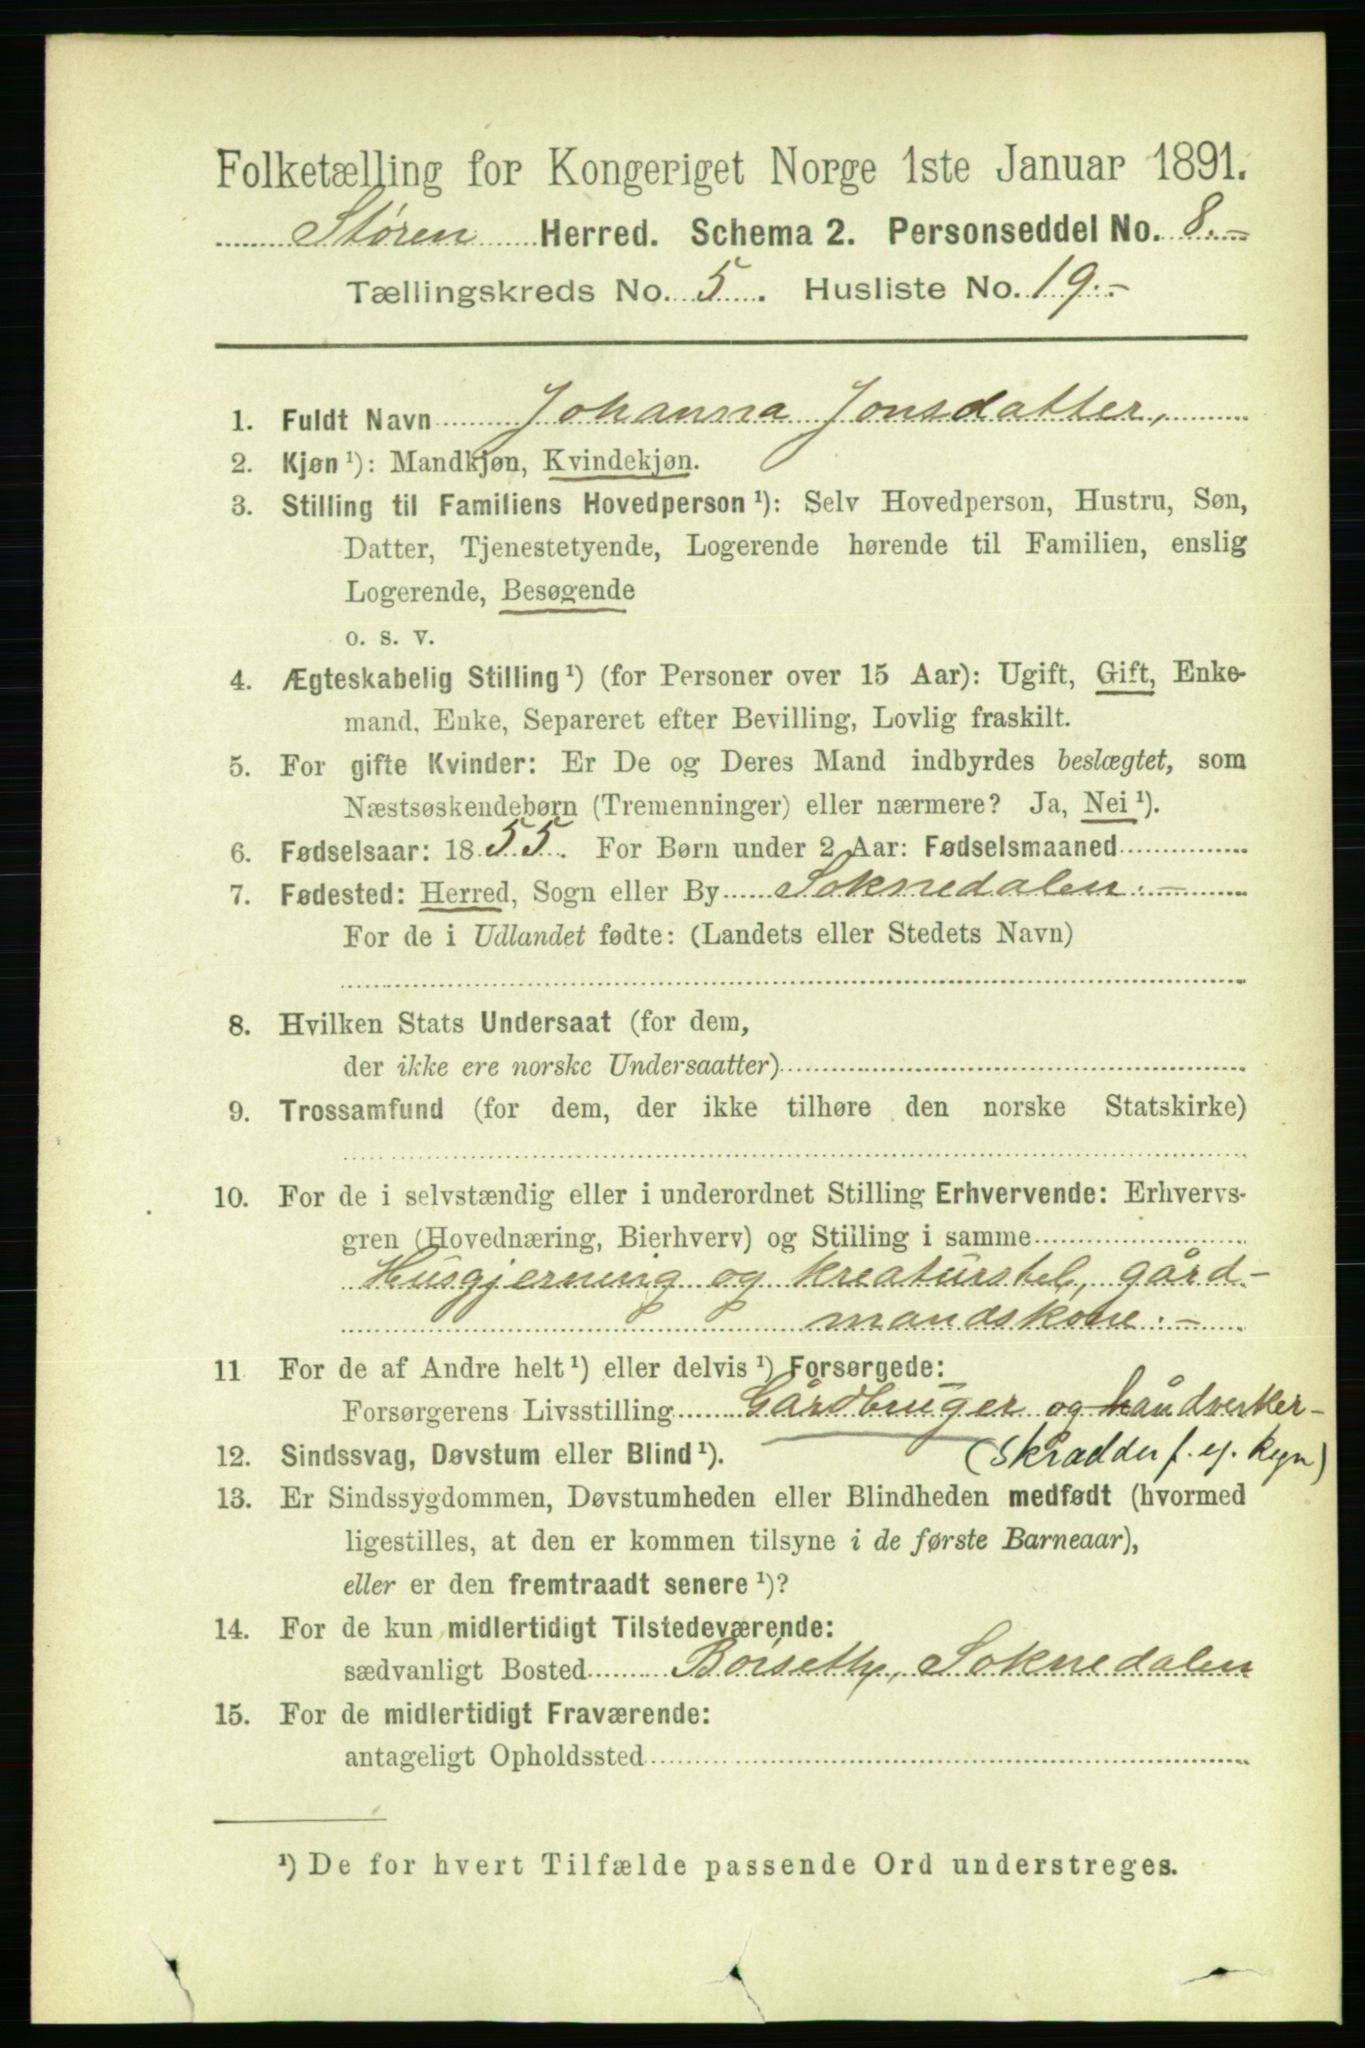 Folketælling for Kongeriget Norge 1ste Januar 1891.
Støren Herred. Schema 2. Personseddel No. 8.-
Tællingskreds No. 5. Husliste No. 19.-
1. Fuldt Navn Johanna Jonsdatter,
2. Kjøn ¹): Mandkjøn, Kvindekjøn.
3. Stilling til Familiens Hovedperson ¹): Selv Hovedperson, Hustru, Søn,
Datter, Tjenestetyende, Logerende hørende til Familien, enslig
Logerende, Besøgende
o. s. v.
4. Ægteskabelig Stilling ¹) (for Personer over 15 Aar): Ugift, Gift, Enke-
mand, Enke, Separeret efter Bevilling, Lovlig fraskilt.
5. For gifte Kvinder: Er De og Deres Mand indbyrdes beslægtet, som
Næstsøskendebørn (Tremenninger) eller nærmere? Ja, Nei ¹).
6. Fødselsaar: 1855. For Børn under 2 Aar: Fødselsmaaned
7. Fødested: Herred, Sogn eller By Soknedalen.-
For de i Udlandet fødte: (Landets eller Stedets Navn)
8. Hvilken Stats Undersaat (for dem,
der ikke ere norske Undersaatter)
9. Trossamfund (for dem, der ikke tilhøre den norske Statskirke)
10. For de i selvstændig eller i underordnet Stilling Erhvervende: Erhvervs-
gren (Hovednæring, Bierhverv) og Stilling i samme
Husgjerning og kreaturstel, gård-
mandskone.-
11 For de af Andre helt ¹) eller delvis ¹) Forsørgede:
Forsørgerens Livsstilling Gårdbruger og håndverker-
12. Sindssvag, Døvstum eller Blind ¹). (Skrædder f. eg. Regn)
13. Er Sindssygdommen, Døvstumheden eller Blindheden medfødt (hvormed
ligestilles, at den er kommen tilsyne i de første Barneaar),
eller er den fremtraadt senere ¹)?
14. For de kun midlertidigt Tilstedeværende:
sædvanligt Bosted Boiseth, Soknedalen
15. For de midlertidigt Fraværende:
antageligt Opholdssted
¹) De for hvert Tilfælde passende Ord understreges.